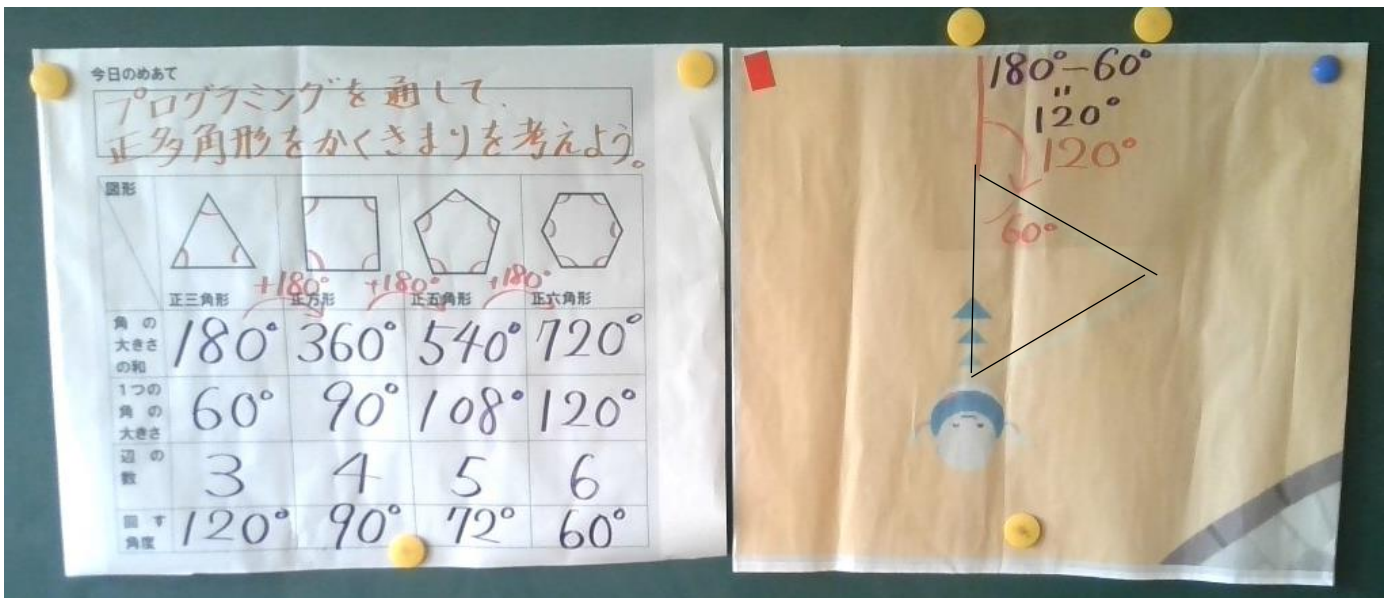 今日のめあて
プログラミングを通して、
正多角形をかくきまりを考えよう。
図形
+180° +180° +180°
正三角形 正方形 正五角形 正六角形
角の大きさの和 180° 360° 540° 720°
1つの角の大きさ 60° 90° 108° 120°
辺の数 3 4 5 6
回す角度 120° 90° 72° 60°
180°-60°
=
120°
120°
60°